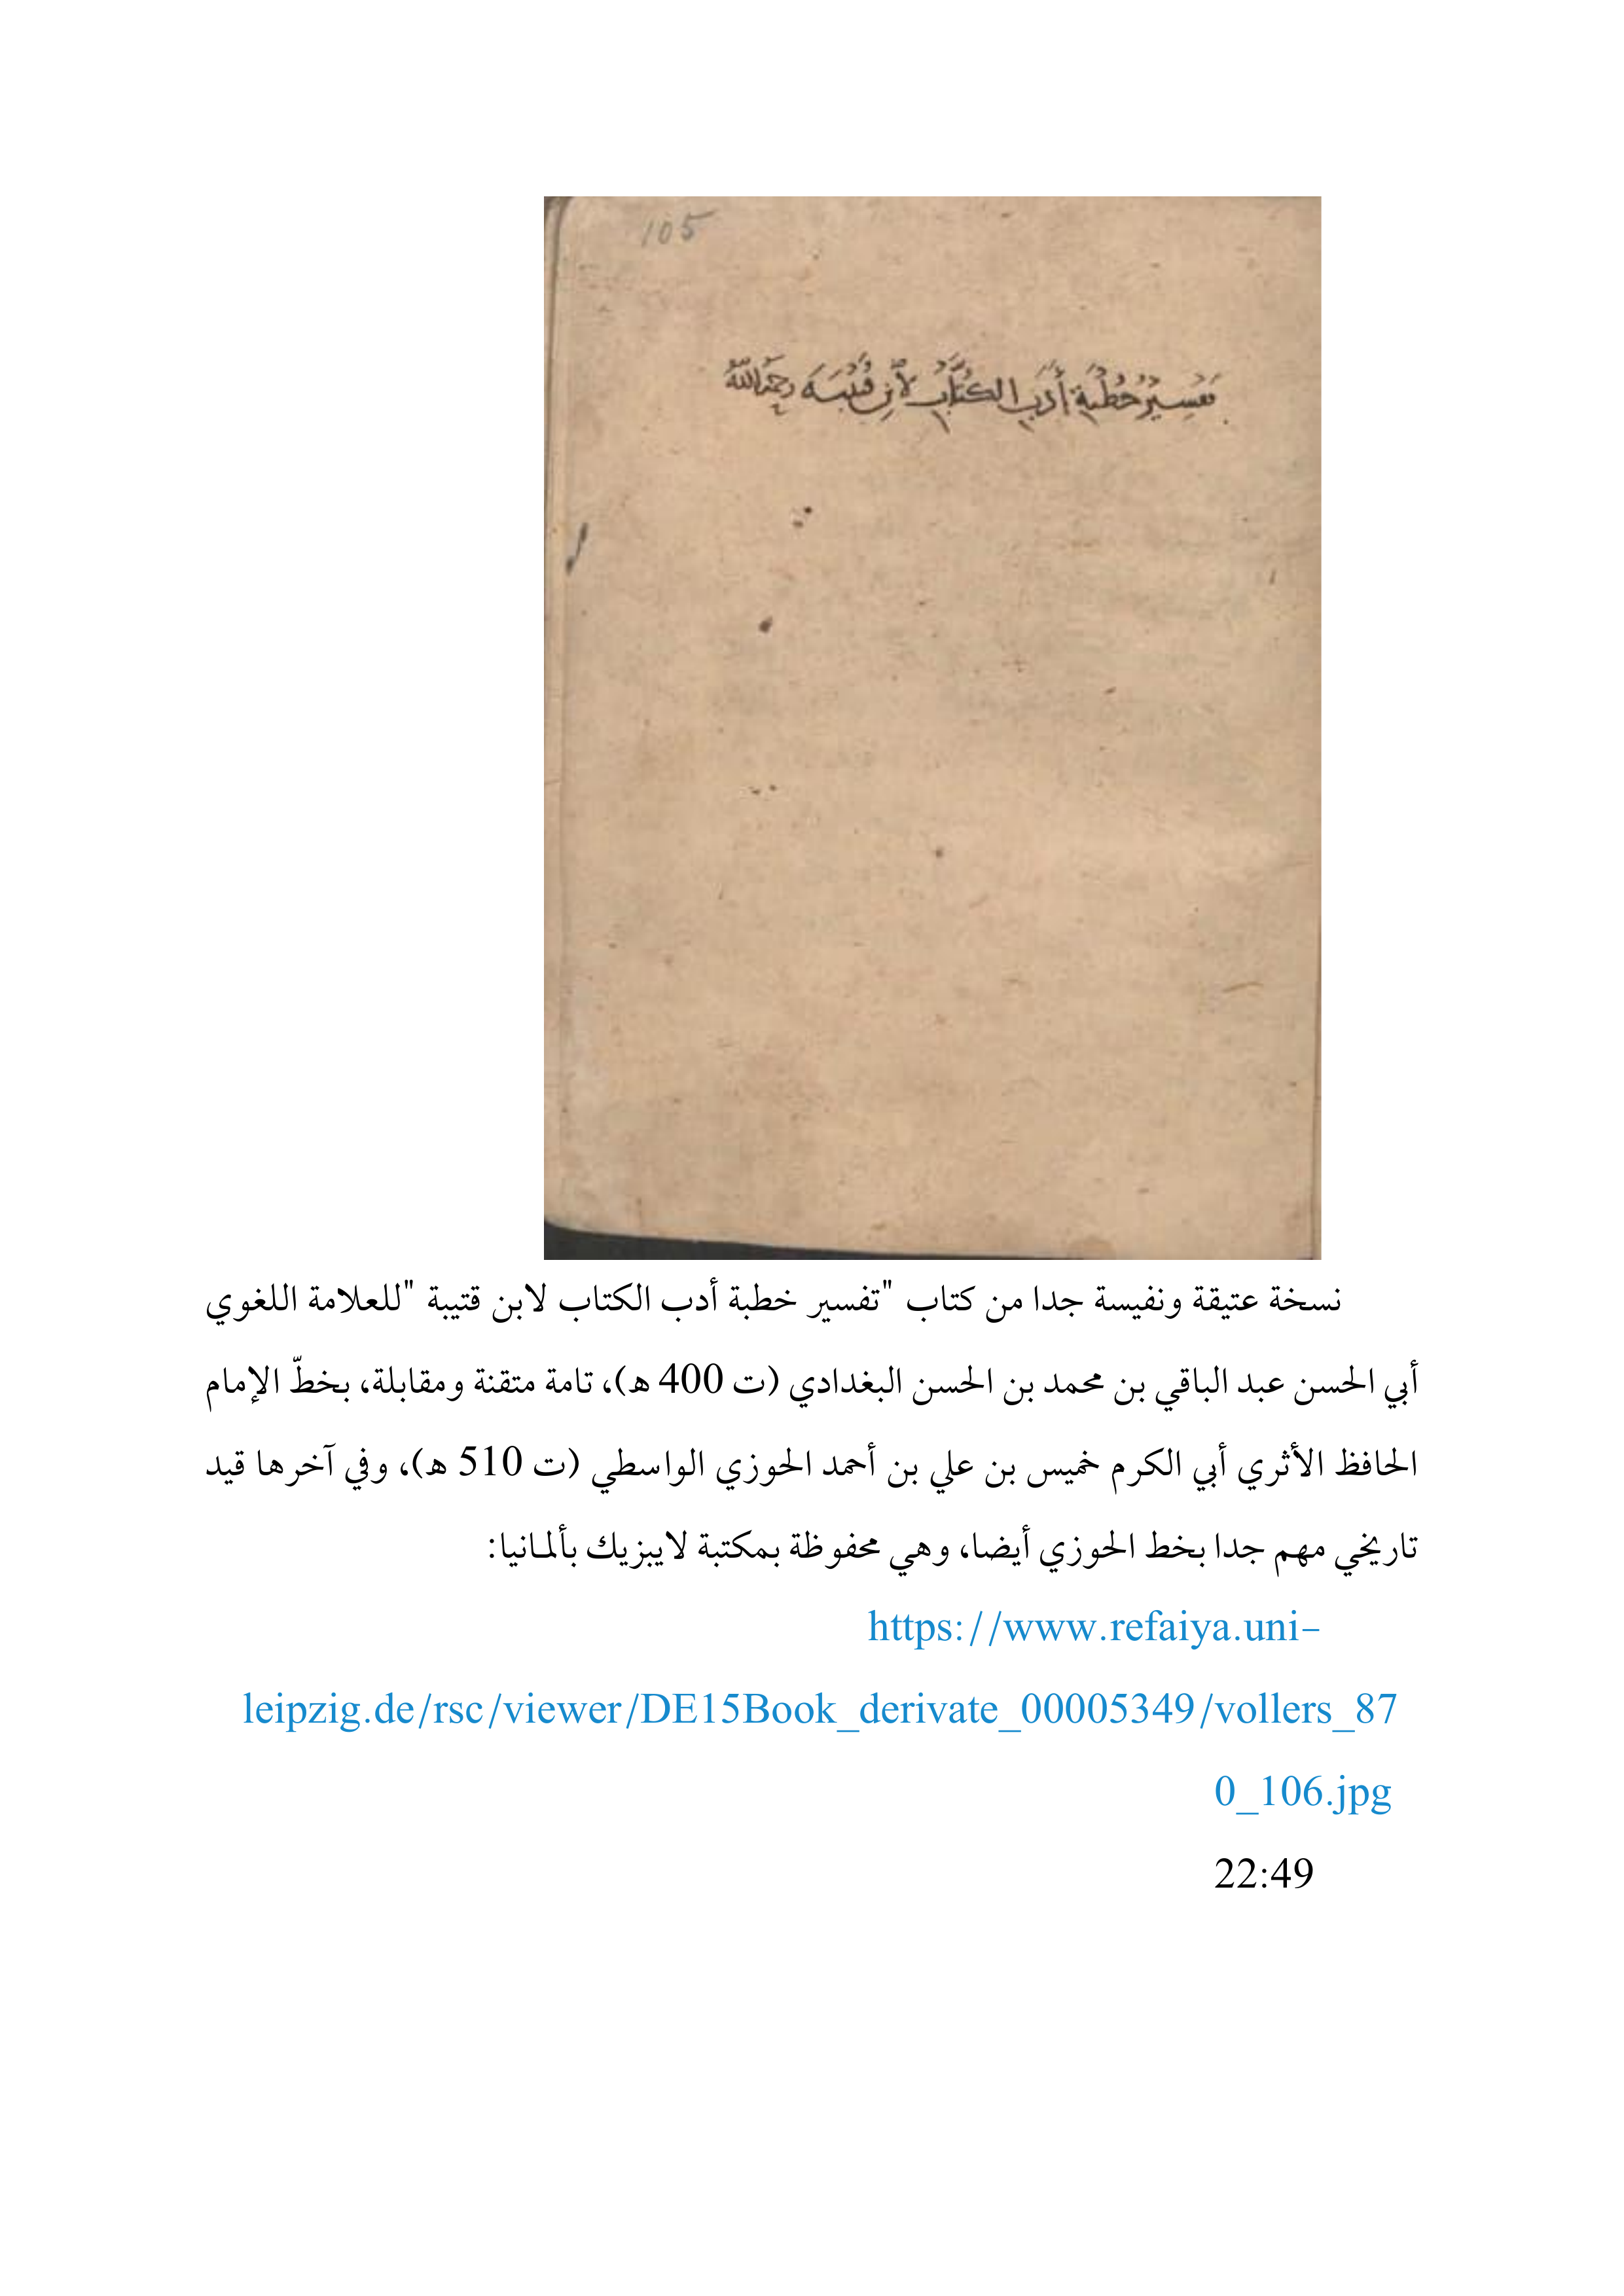 105
تفسير خطبة أدب الكتاب لابن قتيبة رحمه الله
نسخة عتيقة ونفيسة جدا من كتاب "تفسير خطبة أدب الكتاب لابن قتيبة "للعلامة اللغوي
أبي الحسن عبد الباقي بن محمد بن الحسن البغدادي (ت 400 ه)، تامة متقنة ومقابلة، بخطّ الإمام
الحافظ الأثري أبي الكرم خميس بن علي بن أحمد الحوزي الواسطي (ت 510 ه)، وفي آخرها قيد
تاريخي مهم جدا بخط الحوزي أيضا، وهي محفوظة بمكتبة لايبزيك بألمانيا:
https://www.refaiya.uni-
leipzig.de/rsc/viewer/DE15Book_derivate_00005349/vollers_87
0_106.jpg
22:49